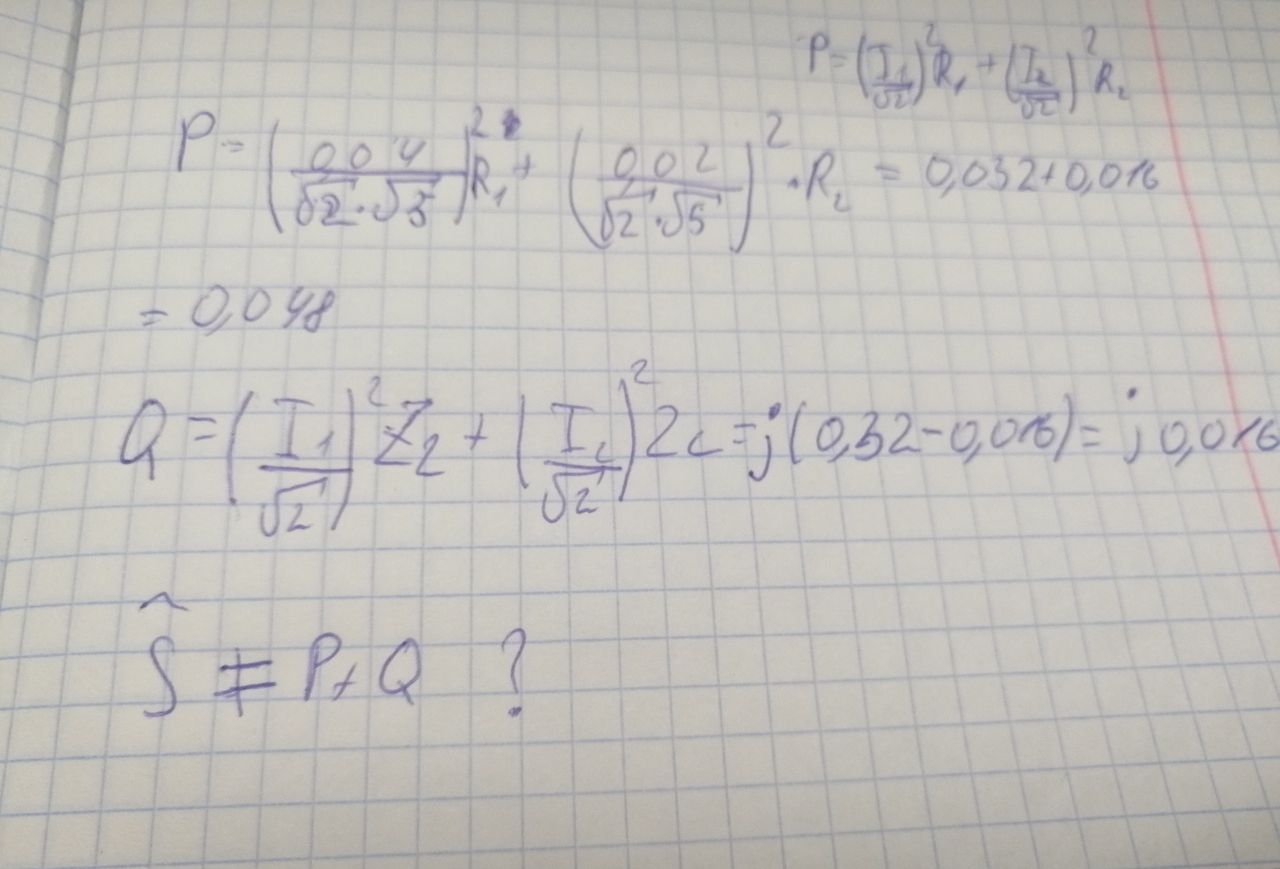 P=(I₁/√2)²R₁+(I₂/√2)²R₂
P=(0,04/√2·√5)²R₁+(0,02/√2·√5)²·R₂=0,032+0,016
=0,048
Q=(I₁/√2)²Z₂+(I_c/√2)²Z_c=j(0,32-0,016)=j0,016
Ŝ≠P+Q ?